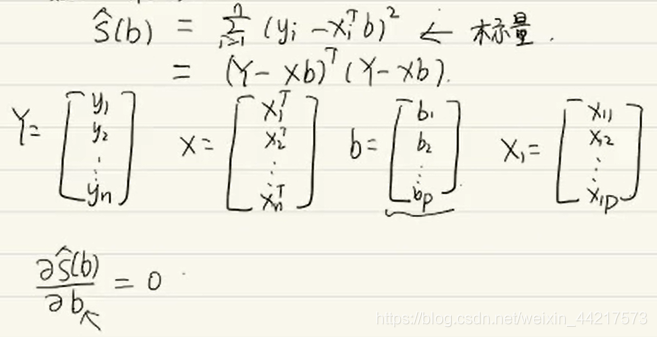 Ŝ(b) = Σⁿᵢ₌₁ (yᵢ - xᵢᵀb)² ← 标量.
= (Y - Xb)ᵀ(Y - Xb).
Y = [y₁ y₂ ⋮ yₙ] X = [x₁ᵀ x₂ᵀ ⋮ xₙᵀ] b = [b₁ b₂ ⋮ bₚ] X₁ = [x₁₁ x₁₂ ⋮ x₁ₚ]
∂Ŝ(b)/∂b = 0
https://blog.csdn.net/weixin_44217573